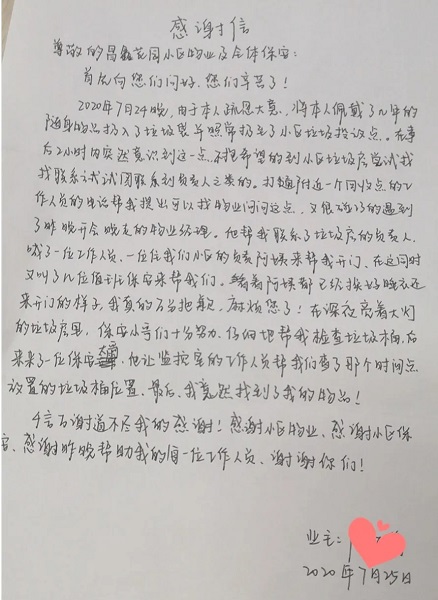 感谢信
尊敬的昌鑫花园小区物业及全体保安：
首先向您们问好，您们辛苦了！
2020年7月24晚，由于本人疏忽大意，将本人佩戴了几年的
随身物品扔入了垃圾袋并照常扔去了小区垃圾投放点。在事
后2小时内突然意识到这一点，不抱希望的到小区垃圾房尝试找
找联系方式试图联系到负责人之类的。打通附近一个回收点的工
作人员的电话帮我提出可以找物业问问这点，又很碰巧的遇到
了昨晚开会晚走的物业经理。他帮我联系了垃圾房的负责人，
喊了一位工作人员，一位住我们小区的负责阿姨来帮我开门，在这同时
又叫了几位值班保安来帮我们。看着阿姨都已经换好睡衣还
来开门的样子，我真的万分抱歉，麻烦您了！在深夜亮着大灯
的垃圾房里，保安小哥们十分努力、仔细地帮我检查垃圾桶，后
来来了一位保安，他让监控室的工作人员帮我们查了那个时间点
放置的垃圾桶位置，最后，我竟然找到了我的物品！
千言万谢道不尽我的感谢！感谢小区物业、感谢小区保
安、感谢昨晚帮助我的每一位工作人员、谢谢你们！
业主：
2020年7月25日